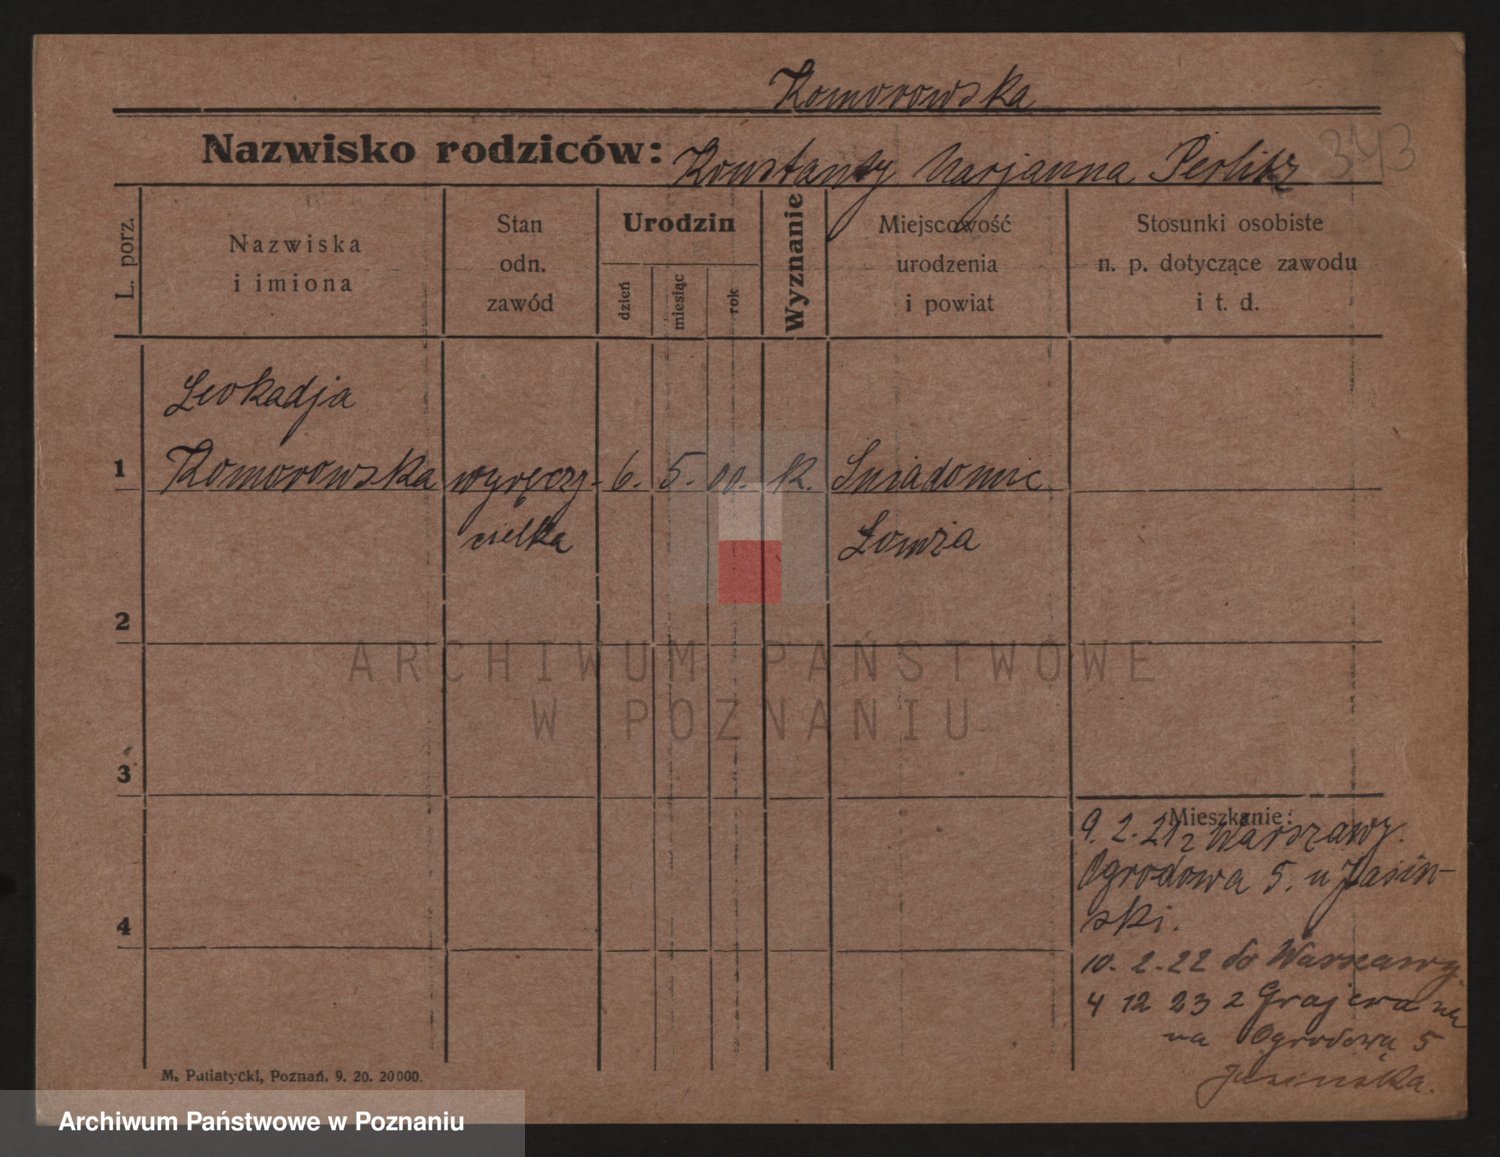 Komorowska
Nazwisko rodziców: Konstanty Marjanna Perlitz 343
L. porz.
Nazwiska
i imiona
Stan
odn.
zawód
Urodzin
dzień
miesiąc
rok
Wyznanie
Miejscowość
urodzenia
i powiat
Stosunki osobiste
n. p. dotyczące zawodu
i t. d.
Leokadja
1 Komorowska wyręczy- 6. 5. 00. K. Śniadowie
cielka Łomża
2
ARCHIWUM PAŃSTWOWE
W POZNANIU
3
Mieszkanie:
9. 2. 21 z Warszawy.
Ogrodowa 5. u Jasiń-
ski.
4
10. 2. 22 do Warszawy
4 12 23 z Grajewa
na Ogrodową 5
Jasińska.
M. Putiatycki, Poznań. 9. 20. 20000.
Archiwum Państwowe w Poznaniu